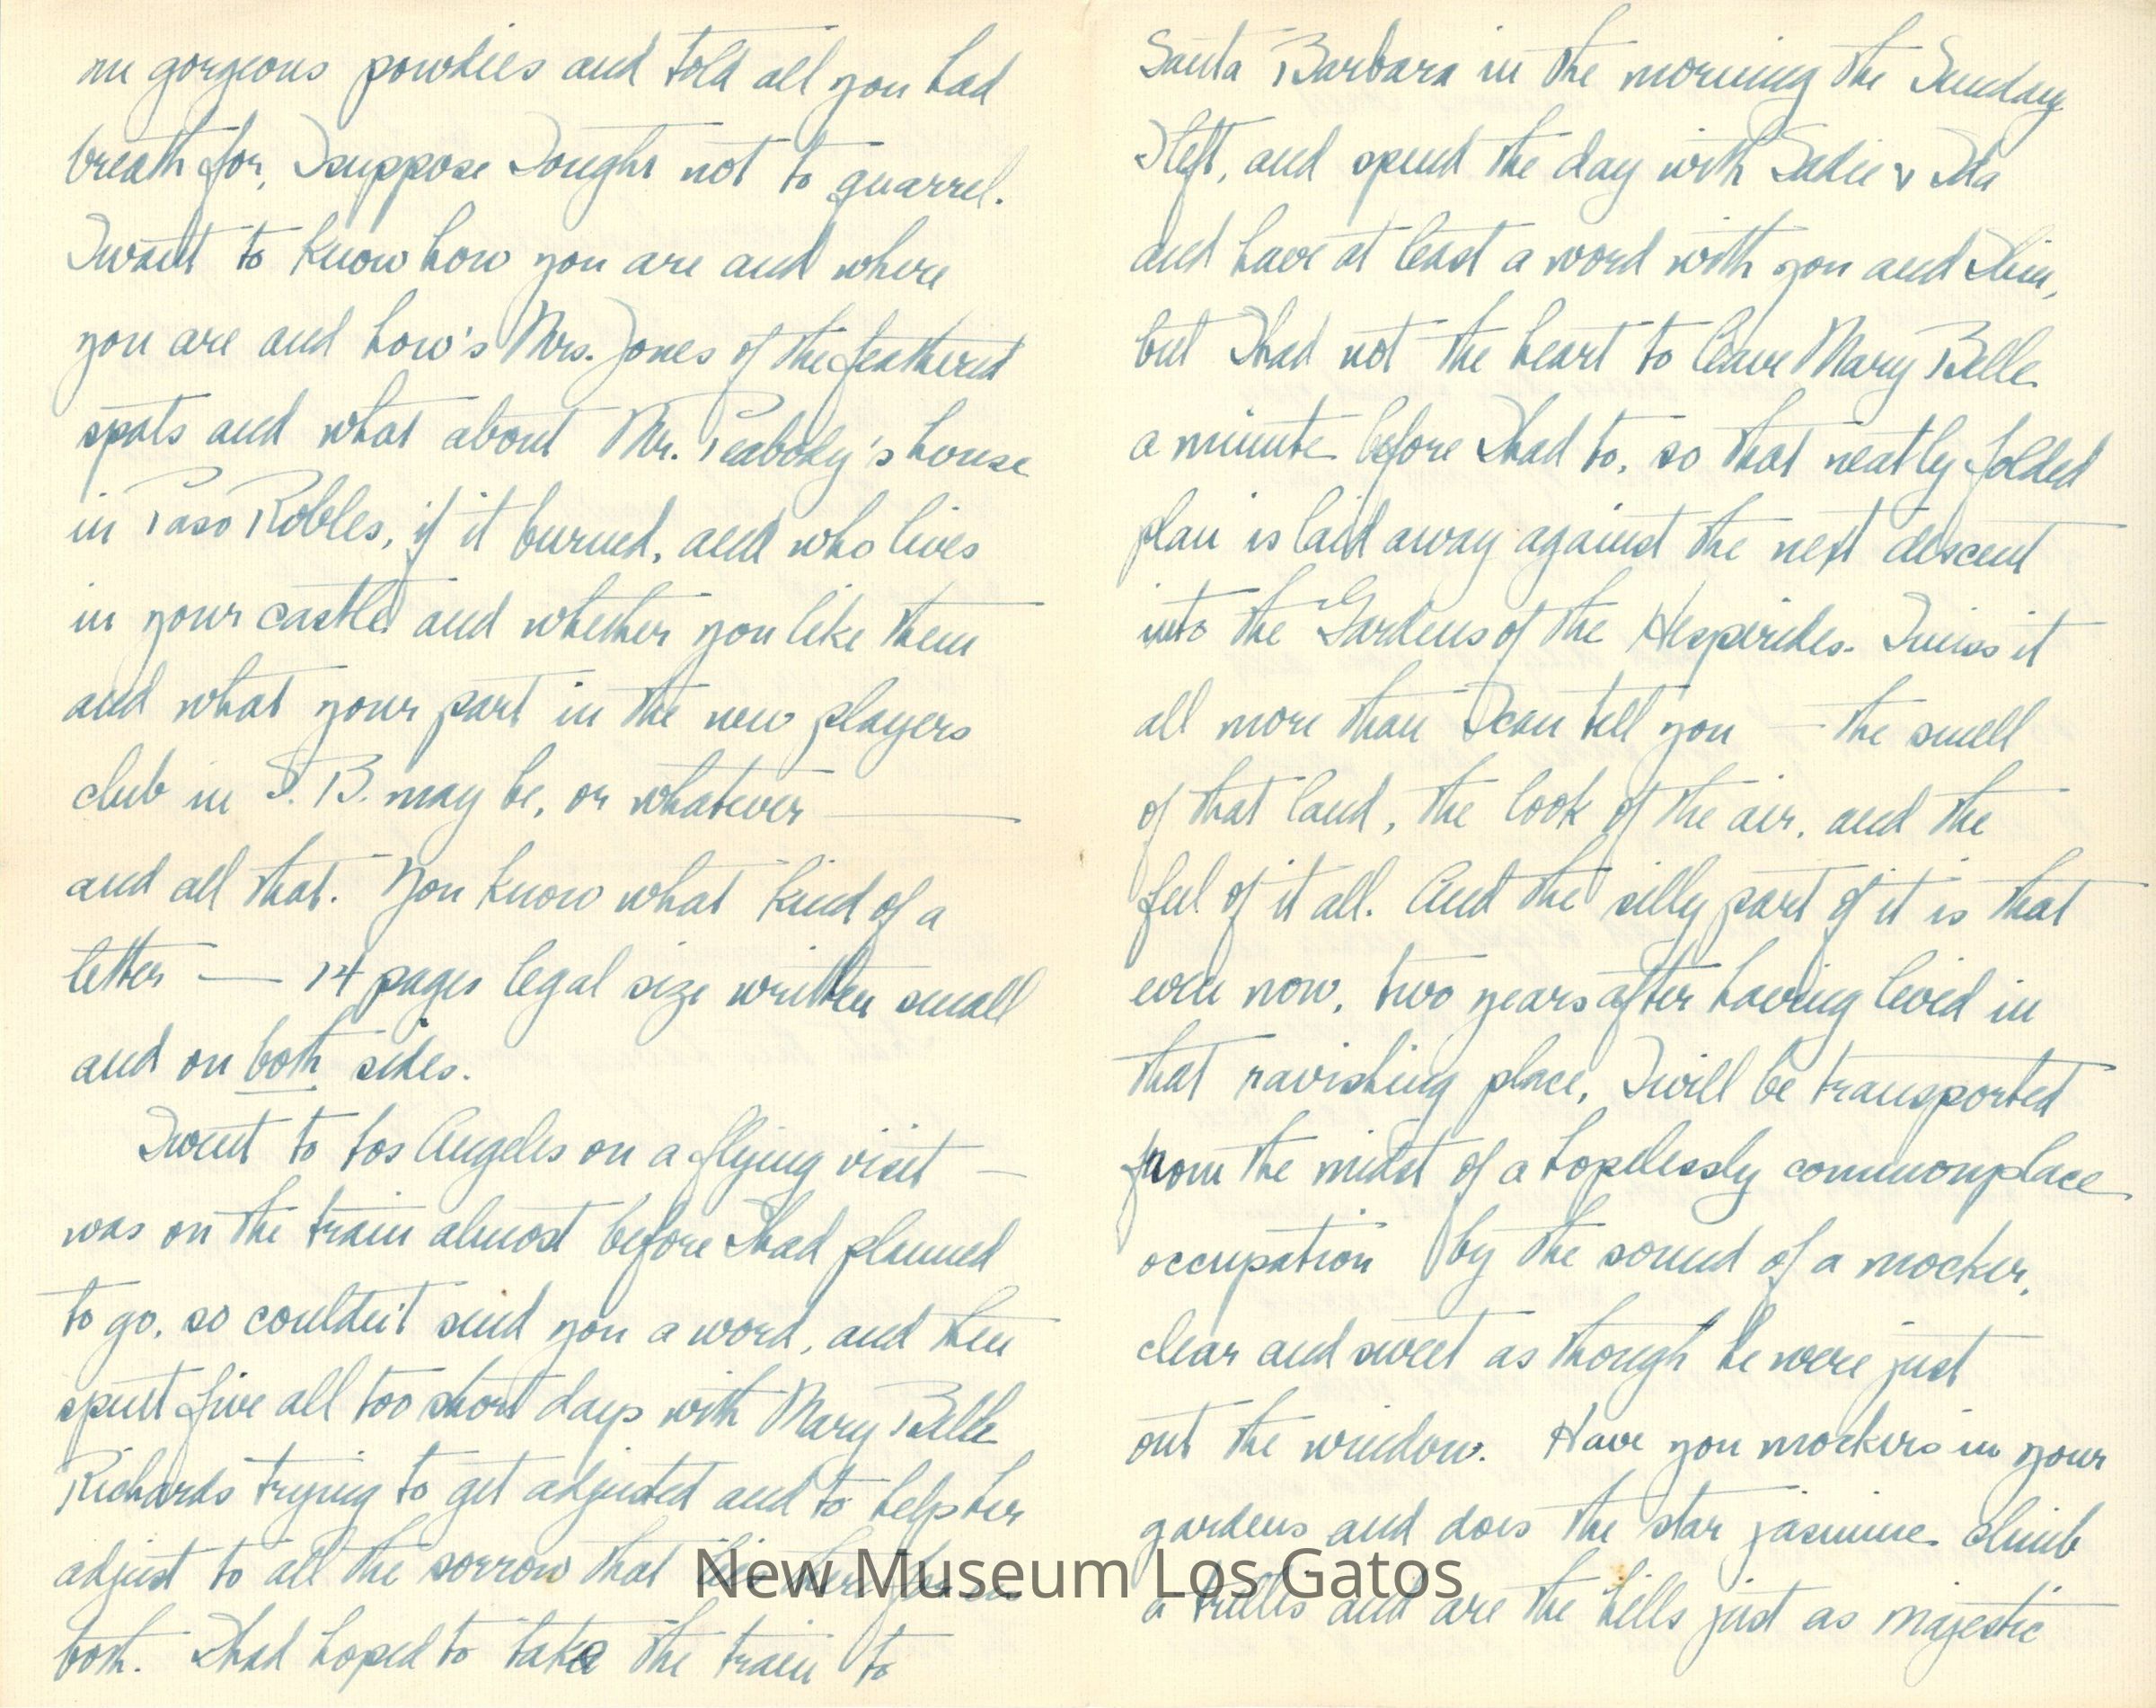 gorgeous and told all you had
breath for, I suppose I ought not to quarrel.
I want to know how you are and where
you are and how's Mrs. Jones of the feathered
spats and what about Mr. Peabody's house
in Paso Robles, if it burned, and who lives
in your castle and whether you like them
and what your part in the new players
club in S. B. may be, or whatever —
and all that. You know what kind of a
letter — 14 pages legal size written small
and on both sides.
I went to Los Angeles on a flying visit —
was on the train almost before I had planned
to go, so couldn't send you a word, and then
spent five all too short days with Mary Belle
Richards trying to get adjusted and to help her
adjust to all the sorrow that
both. I had hoped to take the train to
Santa Barbara in the morning the Sunday
I left, and spend the day with Sadie & Ida
and have at least a word with you and
but I had not the heart to leave Mary Belle
a minute before I had to, so that neatly folded
plan is laid away against the next descent
into the Gardens of the Hesperides. I miss it
all more than I can tell you — the smell
of that land, the look of the air, and the
feel of it all. And the silly part of it is that
even now, two years after having lived in
that ravishing place, I will be transported
from the midst of a hopelessly commonplace
occupation by the sound of a mocker,
clear and sweet as though he were just
out the window. Have you mockers in your
gardens and does the star jasmine climb
a trellis and are the hills just as majestic
New Museum Los Gatos